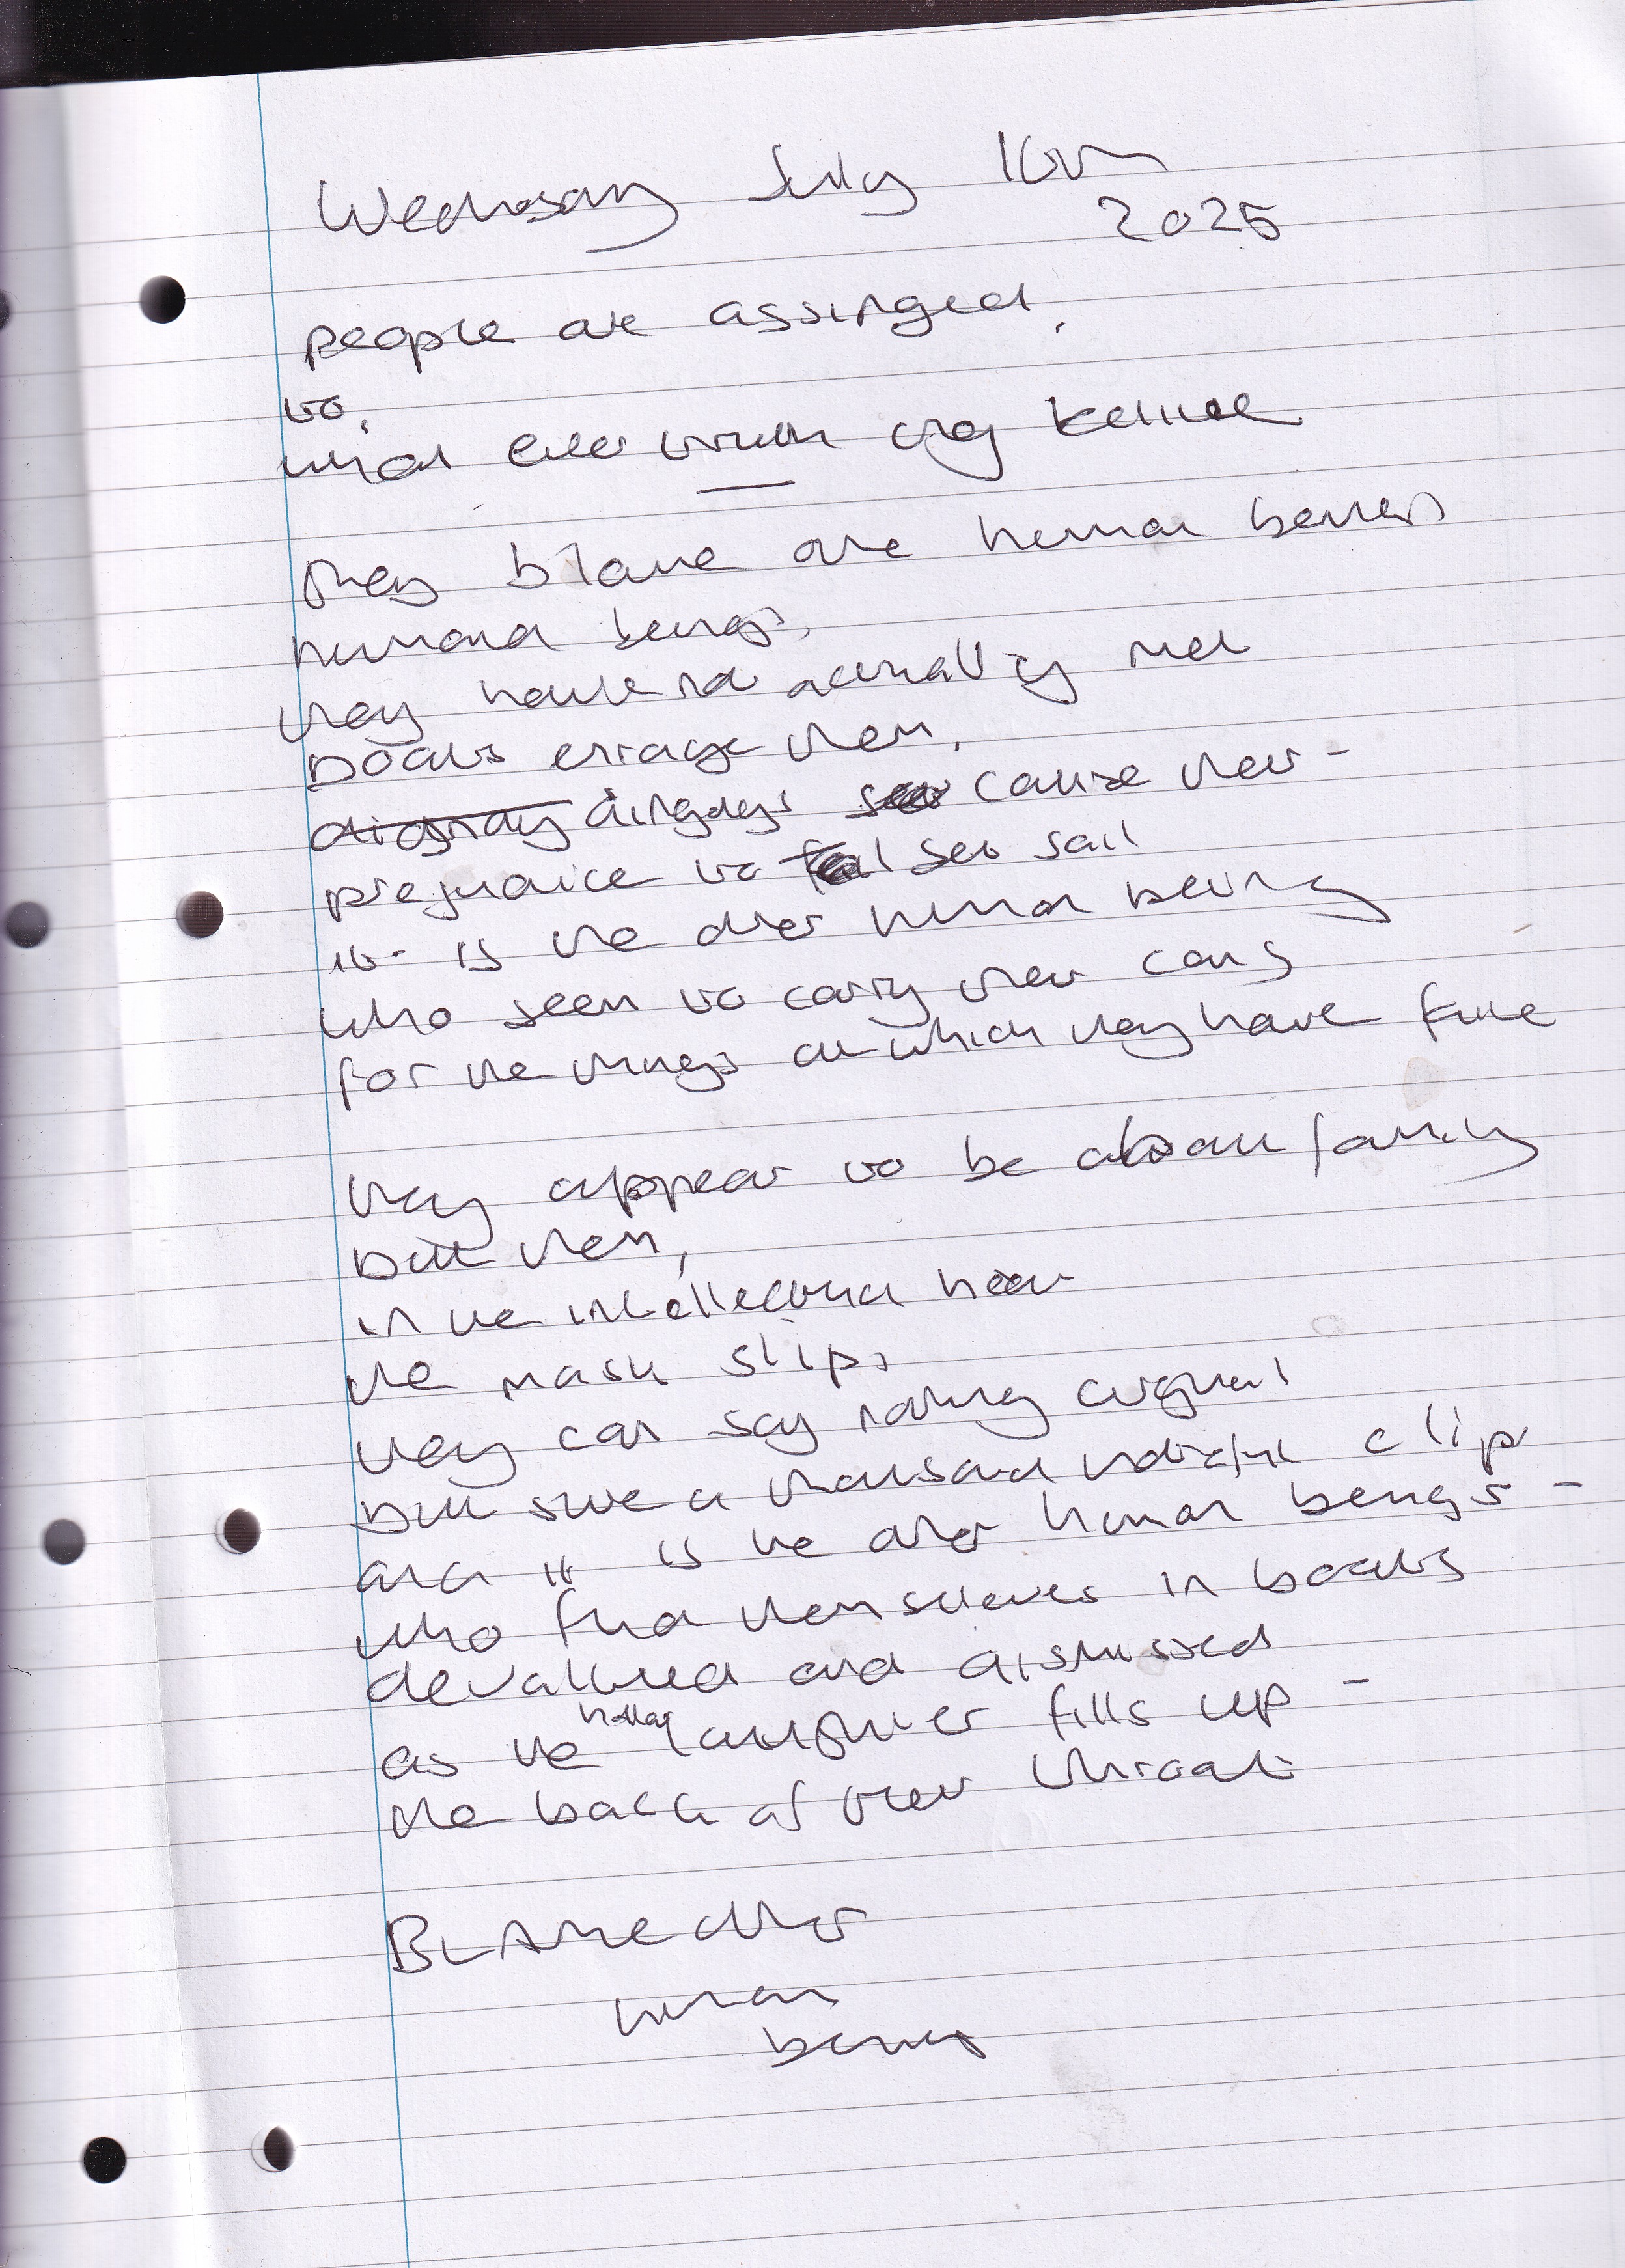 Wednesday July 16th
2025
people are assinged,
to,
what ever truth they believe
They blame one human beings
humand beings,
they have not actually met
books enrage them,
digndays cause their -
prejudice to set sail
it is the other human being
who seem to carry their cans
for the things at which they have
they appear to be about family
but then,
in the intellectual
the mask slips
they can say nothing original
but save a thousand clips
and it is the other human beings -
who find themselves in books
devallued and dismissed
as the hollow laughter fills up -
the back of their throat
BLAME other
human
beings